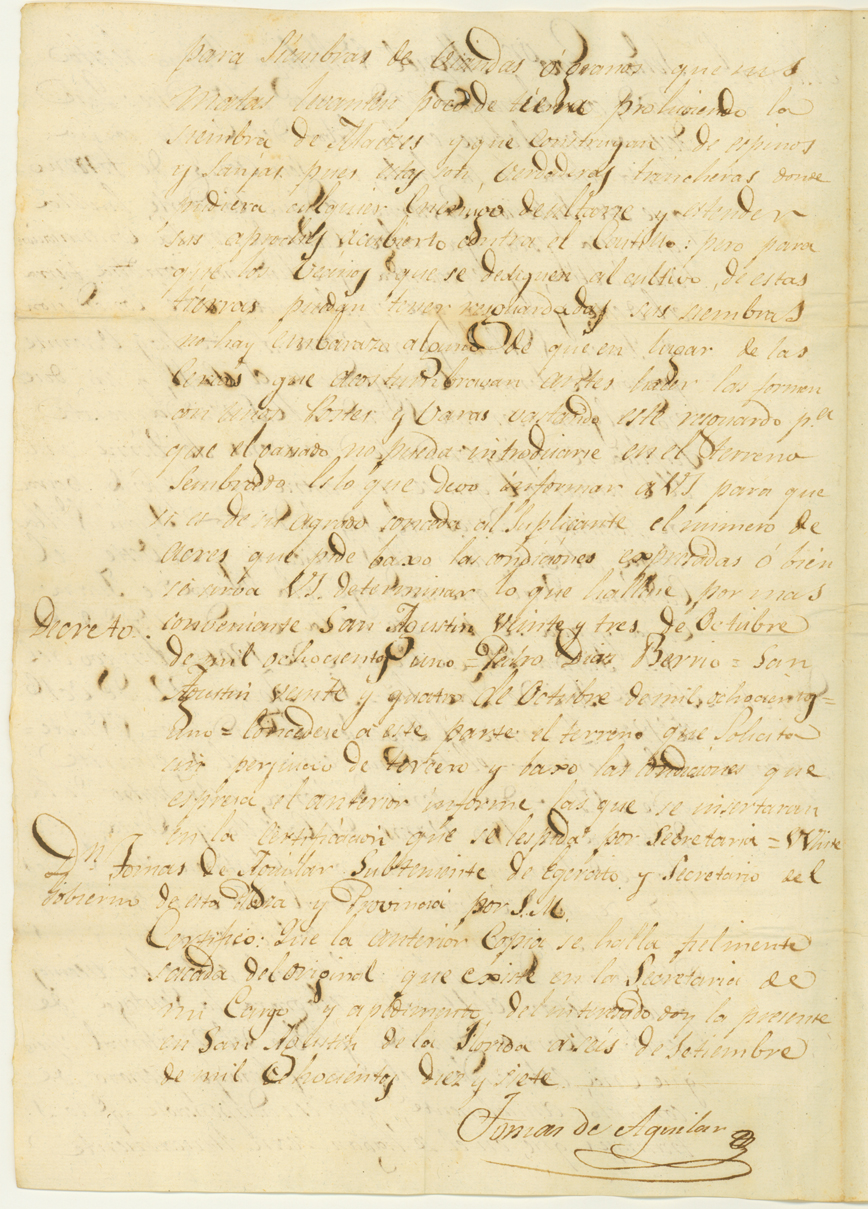 para siembras de Viandas ó granos que sus
matas levanten poco de tierra prohiviendo la
siembra de Maizes y que construyan de espinos
y sanjas pues estas son verdaderas trancheras donde
pudiera cualquier Enemigo y estender
sus aproches a cubierto contra el Castillo: pero para
que los Vecinos que se dediquen al cultivo de estas
tierras puedan tener resguardadas sus siembras
no hay embarazo alguno de que en lugar de las
Cercas que acostumbravan antes hacer las formen
con unos Postes y Varas vastando este resguardo p.a
que el ganado no pueda introducirse en el terreno
Sembrado. Es lo que devo informar a VS. para que
si es de su agrado conceda al Suplicante el numero de
acres que pide baxo las condiciones expresadas ó bien
se sirba VS. determinar lo que hallare por mas
Decreto. conveniente San Agustin Veinte y tres de Octubre
de mil ochocientos uno = Pedro Dias Berrio = San
Agustin veinte y quatro de Octubre de mil ochocientos
uno = Concedese a esta parte el terreno que Solicita
sin perjuicio de tercero y baxo las condiciones que
expresa el anterior informe las que se insertaran
en la Certificacion que se les pida por Secretaria = White
Dn Tomas de Aguilar Subteniente de Egercito y Secretario del
Gobierno de esta Plaza y Provincia por S.M.
Certifico: Que la anterior Copia se halla fielmente
sacada del original que existe en la Secretaria de
mi Cargo y a pedimento del interesado doy la presente
en San Agustin de la Florida a seis de Setiembre
de mil Ochocientos diez y siete
Tomas de Aguilar